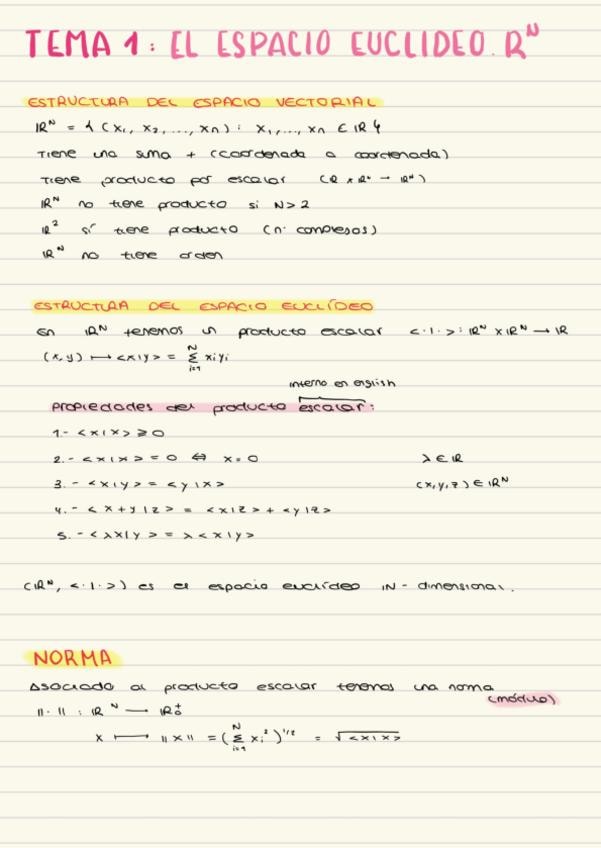 TEMA 1: EL ESPACIO EUCLIDEO. R^N
ESTRUCTURA DEL ESPACIO VECTORIAL
ℝ^N = { (x₁, x₂, ..., xₙ) : x₁, ..., xₙ ∈ ℝ }
Tiene una suma + (coordenada a coordenada)
Tiene producto por escalar (ℝ x ℝ^N → ℝ^N)
ℝ^N no tiene producto si N > 2
ℝ² sí tiene producto (nº complejos)
ℝ^N no tiene orden
ESTRUCTURA DEL ESPACIO EUCLÍDEO
En ℝ^N tenemos un producto escalar <·|·> : ℝ^N x ℝ^N → ℝ
(x,y) ⟼ <x|y> = Σ_{i=1}^{N} xᵢyᵢ
interno en english
Propiedades del producto escalar:
1.- <x|x> ≥ 0
2.- <x|x> = 0 ⇔ x=0 λ ∈ ℝ
3.- <x|y> = <y|x> (x,y,z) ∈ ℝ^N
4.- <x+y|z> = <x|z> + <y|z>
5.- <λx|y> = λ<x|y>
(ℝ^N, <·|·>) es el espacio euclídeo N-dimensional.
NORMA
Asociado al producto escalar tenemos una norma
(módulo)
||·|| : ℝ^N → ℝ₀⁺
x ⟼ ||x|| = (Σ_{i=1}^{N} xᵢ²)^{1/2} = √<x|x>